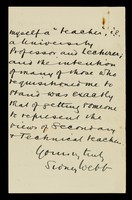 myself a "teacher", i.e.
a University
Professor and Lecturer,
and the intention
of many of those who
requisitioned me to
stand was exactly
that of getting someone
to represent the
views of Secondary
& Technical teachers
Yours truly
Sidney Webb